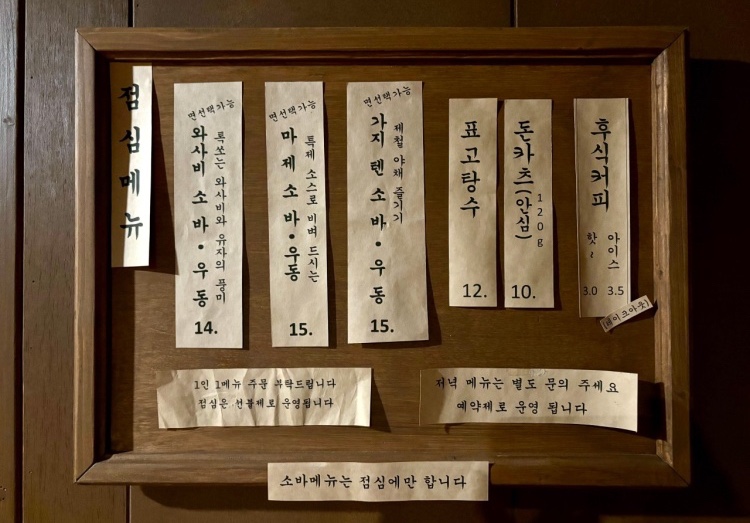 점심메뉴
면선택가능
와사비 소바•우동
톡쏘는 와사비와 유자의 풍미
14.
면선택가능
마제소바•우동
특제 소스로 비벼 드시는
15.
면선택가능
가지텐소바•우동
제철 야채 즐기기
15.
표고탕수
12.
돈카츠(안심)
120g
10.
후식커피
핫~
3.0
아이스
3.5
(테이크아웃)
1인 1메뉴 주문 부탁드립니다
점심은 선불제로 운영됩니다
저녁 메뉴는 별도 문의 주세요
예약제로 운영 됩니다
소바메뉴는 점심에만 합니다